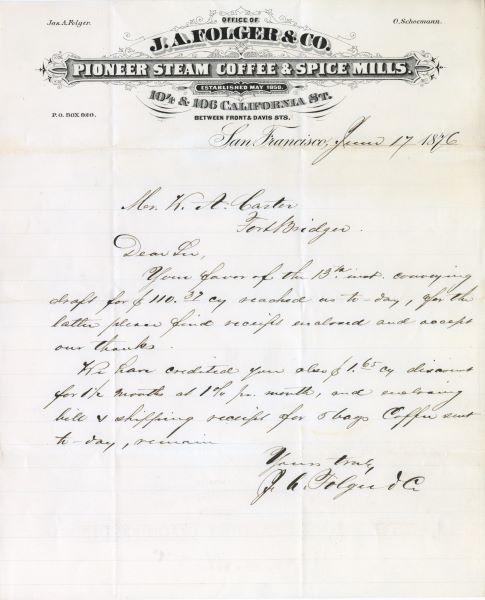 Jas. A. Folger.
OFFICE OF
O. Schoemann.
J. A. FOLGER & CO.
PIONEER STEAM COFFEE & SPICE MILLS.
ESTABLISHED MAY 1850.
104 & 106 CALIFORNIA ST.
P.O. BOX 2020.
BETWEEN FRONT & DAVIS STS.
San Francisco, June 17 1876
Mr. W. A. Carter
Fort Bridger.
Dear Sir,
Your favor of the 13th inst. conveying
draft for $110.37 cy reached us to-day, for the
latter please find receipt enclosed and accept
our thanks.
We have credited you also $1.65 cy discount
for 1½ months at 1% pr. month, and enclosing
bill & shipping receipt for 5 bags Coffee sent
to-day, remain
Yours truly
J. A. Folger & Co